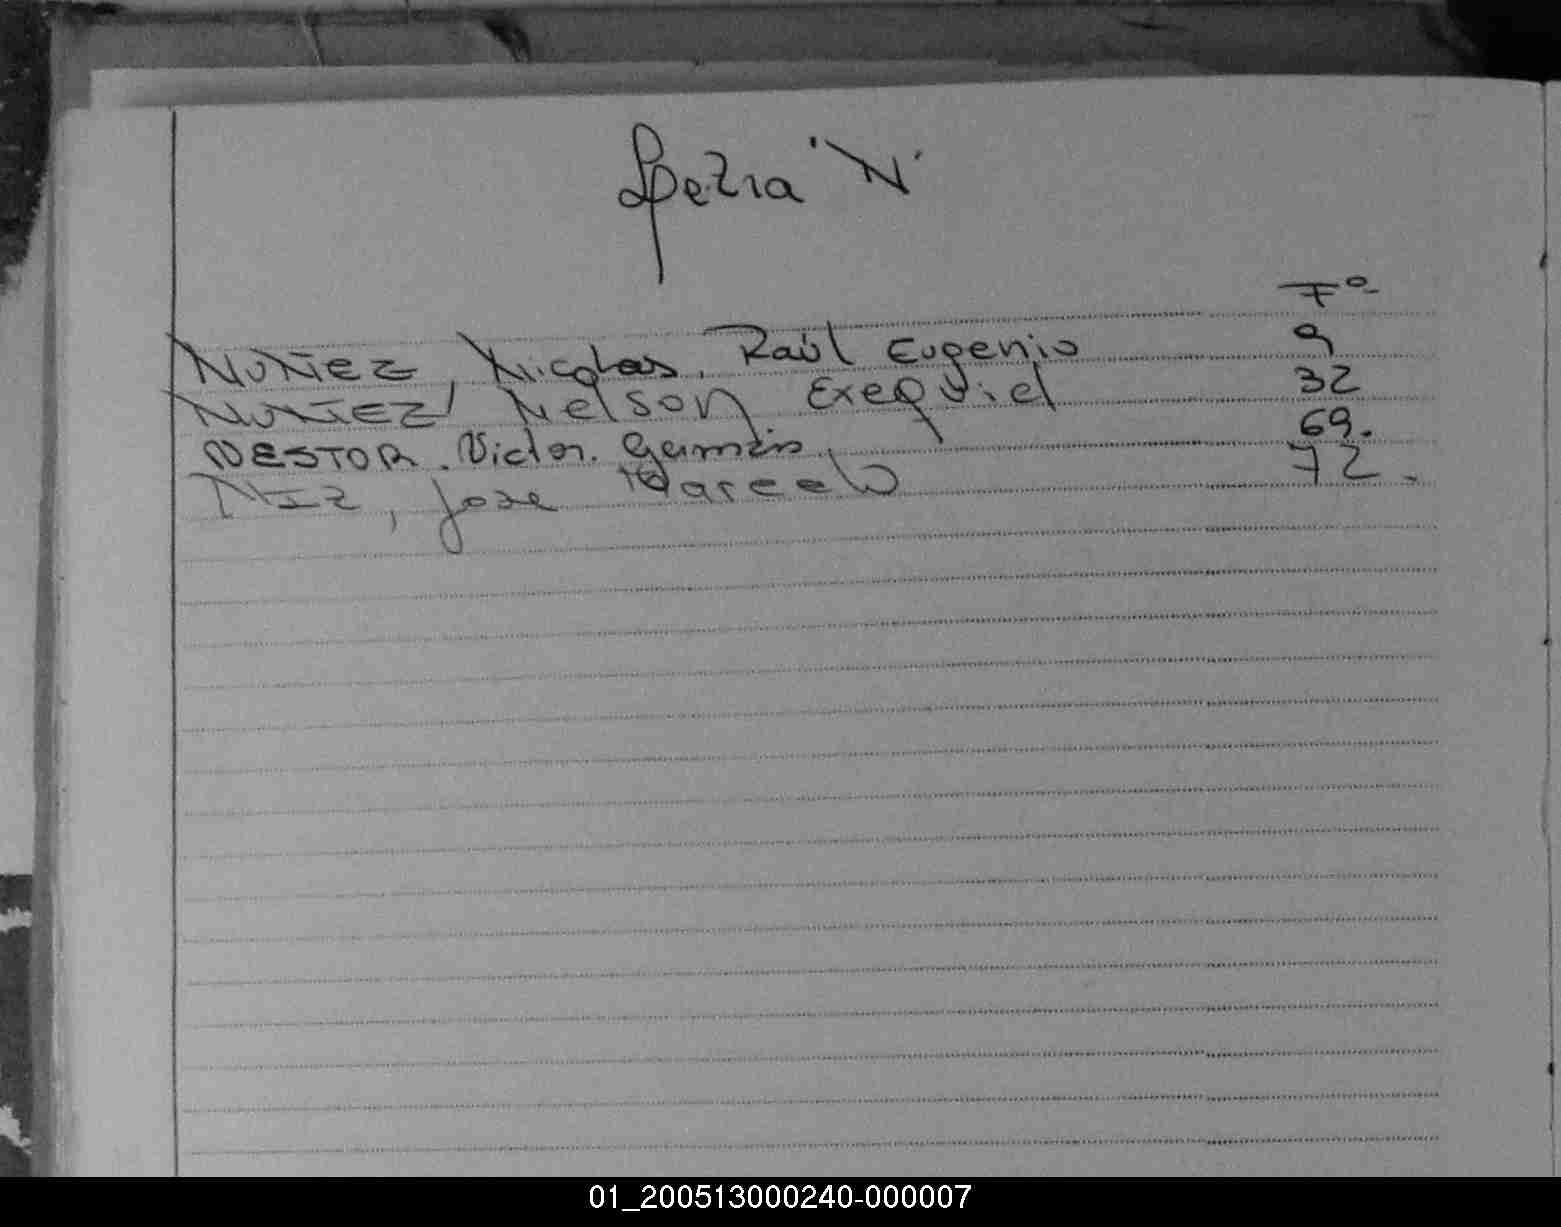 Letra "N"
Fº
NUÑEZ, Nicolas, Raúl Eugenio 9
NUÑEZ, Nelson Exequiel 32
NESTOR. Victor. Germán 69.
NIZ, Jose Marcelo 72.
01_200513000240-000007